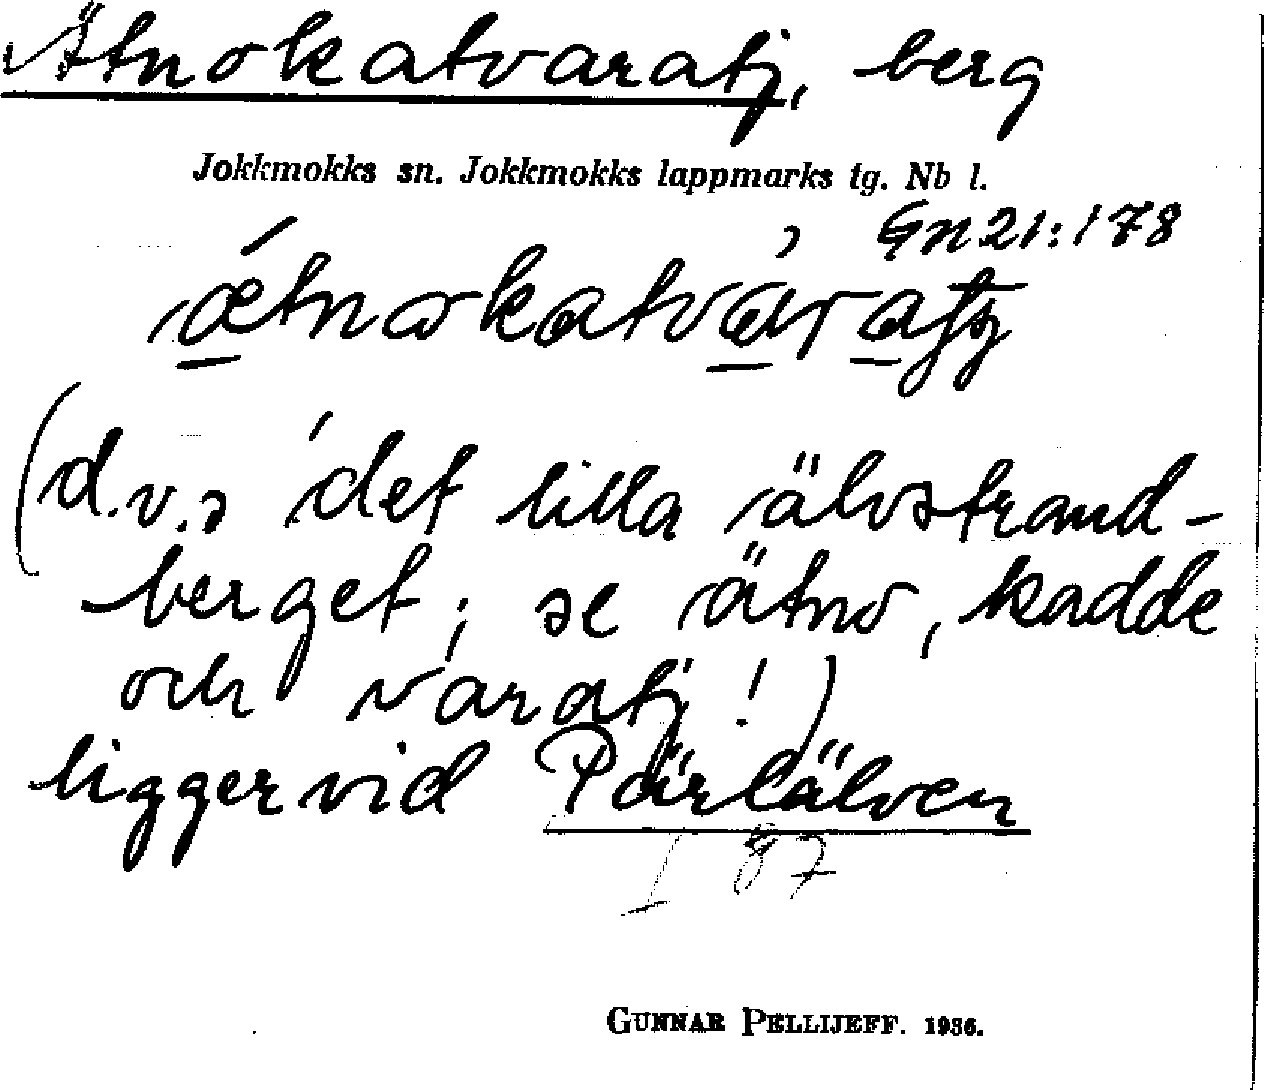 Ätnokatvaratj, berg
Jokkmokks sn. Jokkmokks lappmarks tg. Nb l.
Gn 21:178
(d.v.s 'det lilla älvstrand-
berget; se ätno, kadde
och varatj!)
ligger vid Pärlälven
I 87
GUNNAR PELLIJEFF. 1936.